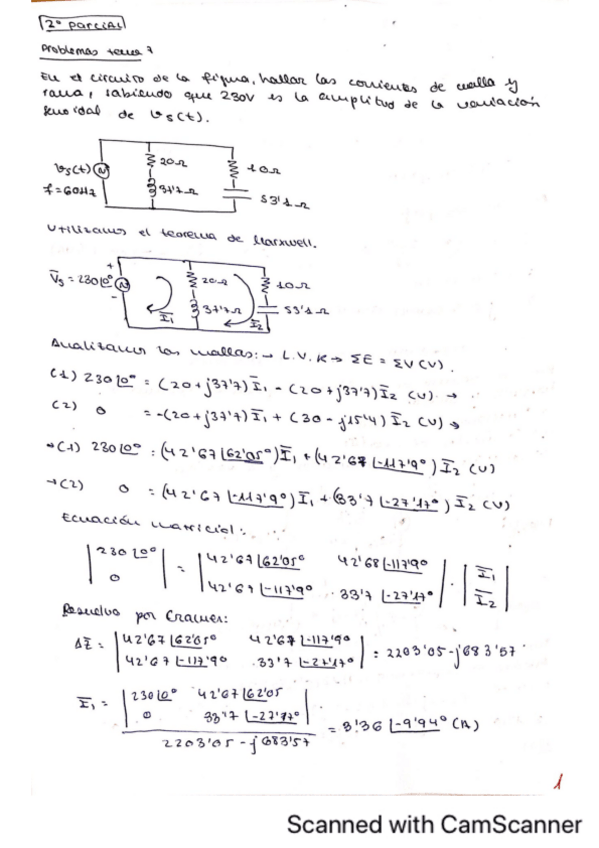 2º parcial
Problemas tema 7
En el circuito de la figura, hallar las corrientes de malla y
rama, sabiendo que 230V es la amplitud de la variación
senoidal de Vs(t).
Vs(t)
f=60Hz
20Ω
37'7Ω
10Ω
53'1Ω
Utilizamos el teorema de Maxwell.
+
V̄s = 230∠0º
-
20Ω
37'7Ω
10Ω
53'1Ω
Ī1
Ī2
Analizamos las mallas: → L.V.K → ΣE = ΣV (V).
(1) 230∠0º = (20+j37'7) Ī1 - (20+j37'7) Ī2 (V) →
(2) 0 = -(20+j37'7) Ī1 + (30-j15'4) Ī2 (V) →
→(1) 230∠0º = (42'67∠62'05º) Ī1 + (42'67∠-117'9º) Ī2 (V)
→(2) 0 = (42'67∠-117'9º) Ī1 + (33'7∠-27'17º) Ī2 (V)
Ecuación matricial:
|230∠0º| = |42'67∠62'05º 42'68∠-117'9º| · |Ī1|
|0| |42'67∠-117'9º 33'7∠-27'17º| |Ī2|
Resuelvo por Cramer:
ΔZ̄ = |42'67∠62'05º 42'67∠-117'9º| = 2203'05-j683'57
|42'67∠-117'90 33'7∠-27'17º|
Ī1 = |230∠0º 42'67∠62'05| = 8'36∠-9'94º (A)
|0 33'7∠-27'17º|
2203'05-j683'57
1
Scanned with CamScanner